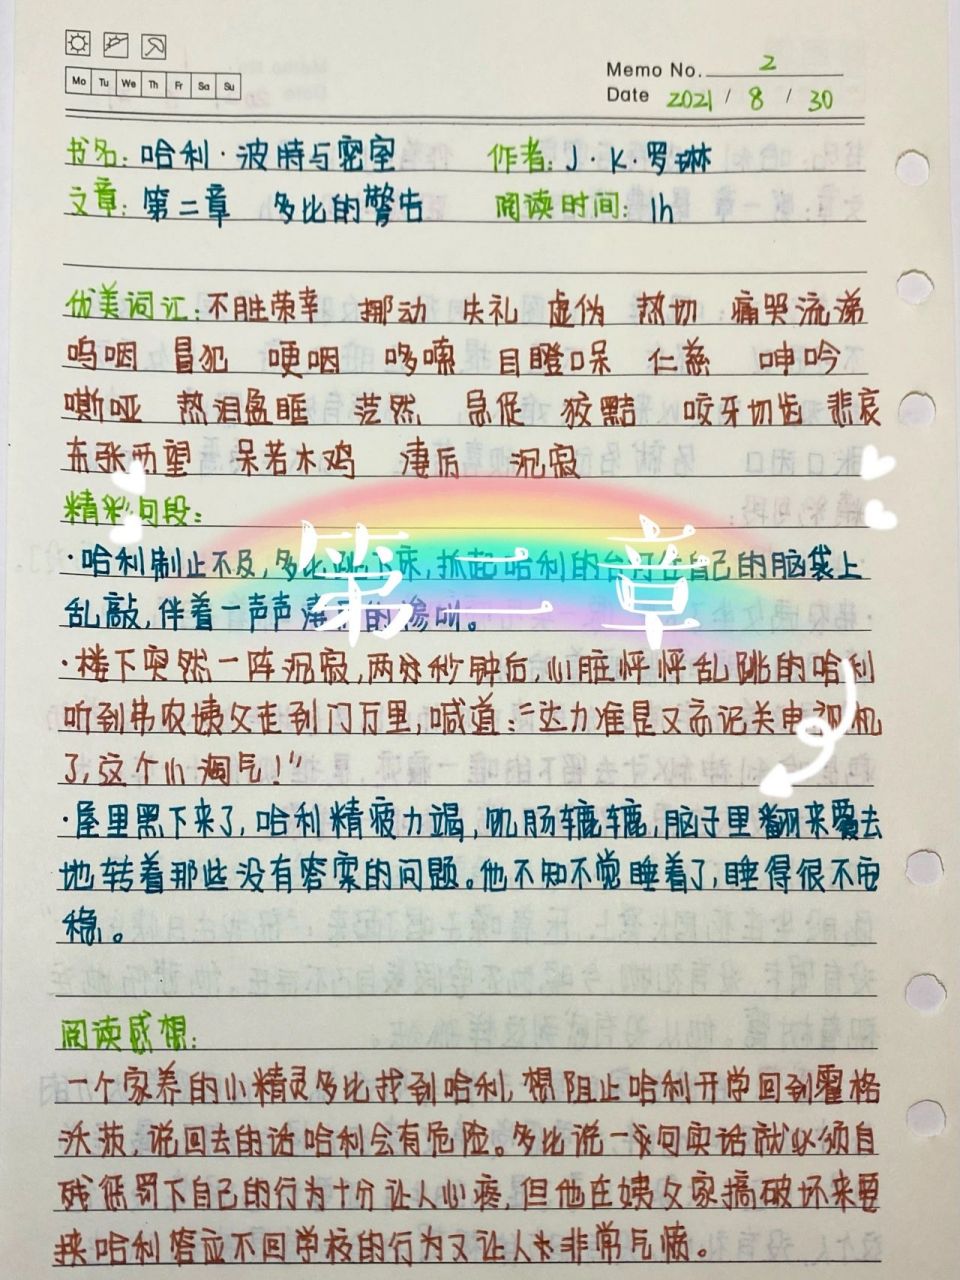 Mo Tu We Th Fr Sa Su
Memo No. 2
Date 2021 / 8 / 30
书名: 哈利·波特与密室 作者: J·K·罗琳
文章: 第二章 多比的警告 阅读时间: 1h
优美词汇: 不胜荣幸 挪动 失礼 虚伪 热切 痛哭流涕
呜咽 冒犯 哽咽 哆嗦 目瞪口呆 仁慈 呻吟
嘶哑 热泪盈眶 茫然 急促 狡黠 咬牙切齿 悲哀
东张西望 呆若木鸡 凄厉 沉寂
精彩句段:
·哈利制止不及,多比跳下床,抓起哈利的台灯往自己的脑袋上
第二章
乱敲,伴着一声声的惨叫。
·楼下突然一阵沉寂,两分秒钟后,心脏怦怦乱跳的哈利
听到弗农姨父走到门厅里,喊道:“达力准是又忘记关电视机
了,这个小淘气!”
·屋里黑下来了,哈利精疲力竭,饥肠辘辘,脑子里翻来覆去
地转着那些没有答案的问题。他不知不觉睡着了,睡得很不安
稳。
阅读感想:
一个家养的小精灵多比找到哈利,想阻止哈利开学回到霍格
沃茨,说回去的话哈利会有危险。多比说一句实话就必须自
残惩罚下自己的行为十分让人心疼,但他在姨父家搞破坏来要
挟哈利答应不回学校的行为又让人非常气愤。